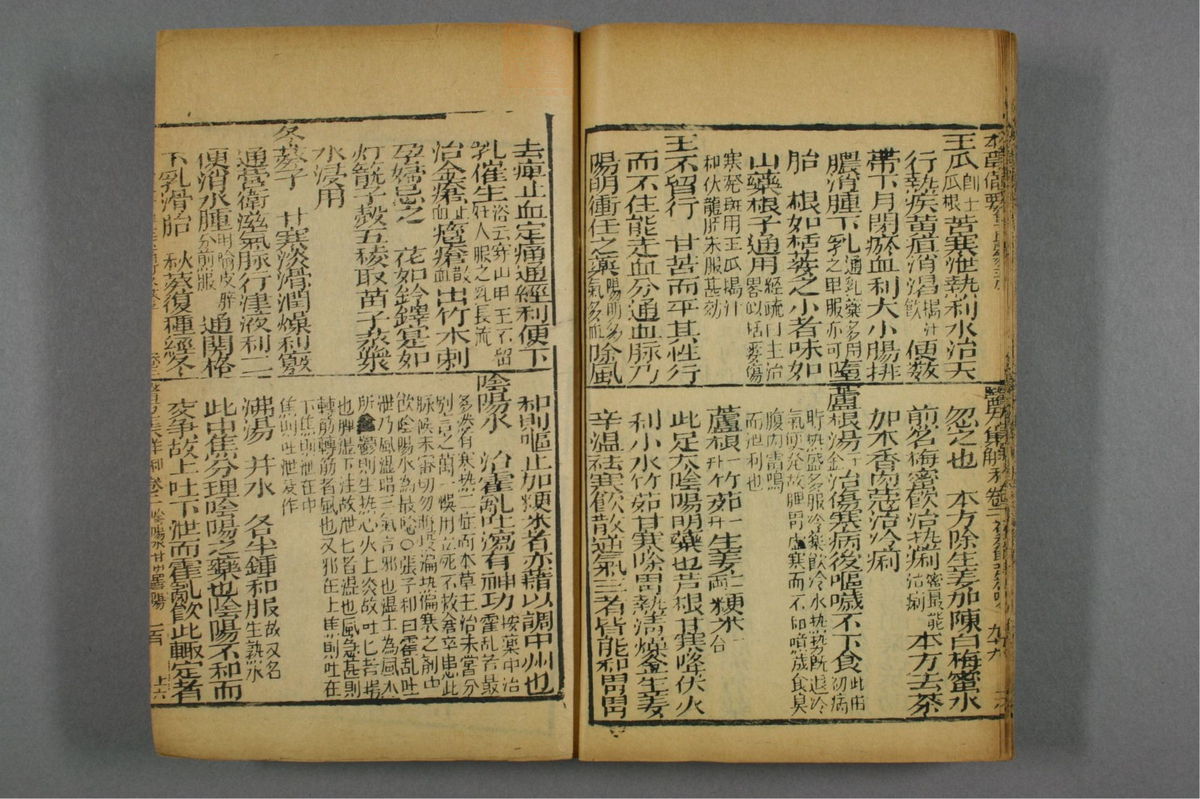 本草備要
王瓜即土瓜根苦寒泄熱利水治天
行熱疾黃疸消渴搗汁飲便數
帶下月閉瘀血利大小腸排
膿消腫下乳通乳藥多用之單服亦可墮
胎　根如栝蔞之小者味如
山藥根子通用經疏曰主治畧似栝蔞傷
寒發斑用王瓜搗汁和伏龍肝末服甚効
王不留行　甘苦而平其性行
而不住能走血分通血脉乃
陽明衝任之藥陽明多氣多血除風
醫方集解　和卷三　九九
忽之也　本方除生姜加陳白梅蜜水
煎名梅蜜飲治熱痢蜜最能治痢本方去茶
加木香肉蔻治冷痢
蘆根湯千金治傷寒病後嘔噦不下食此由初病
時熱盛多服冷藥飲冷水熱勢既退冷
氣便發故脾胃虛寒而不和噫噦食臭
腹內雷鳴而泄利也
蘆根一升竹茹一升生姜二両粳米一合
此足太陰陽明藥也芦根甘寒降伏火
利小水竹茹甘寒除胃熱清燥金生姜
辛溫祛寒飲散逆氣三者皆能和胃胃
去痺止血定痛通經利便下
乳催生俗云穿山甲王不留婦人服之乳長流
治金瘡止血癰瘡散血出竹木刺
孕婦忌之　花如鈴鐸實如
灯籠子殼五稜取苗子蒸漿
水浸用
冬葵子　甘寒淡滑潤燥利竅
通營衛滋氣脉行津液利二
便消水腫用榆皮等分煎服通關格
下乳滑胎　秋葵復種經冬
和則嘔止加粳米者亦藉以調中州也
陰陽水　治霍亂吐瀉有神功按藥中治霍亂者最
多然有寒熱二症而本草主治未嘗分
別言之萬一悞用立死不救倉卒患此
脉候未審切勿輕投偏熱偏寒之劑曰
飲陰陽水為最穩○張子和曰霍亂吐
泄乃風濕暍三氣合邪也濕土為風木
所鬱則生熱心火上炎故吐吐者暍
也脾濕下注故泄泄者濕也風急甚則
轉筋轉筋者風也又邪在上焦則吐在
下焦則泄在中焦則吐泄交作
沸湯　井水　各半鍾和服故又名生熟水
此中焦分理陰陽之藥也陰陽不和而
交爭故上吐下泄而霍亂飲此輒定者
陰陽　一百　上六